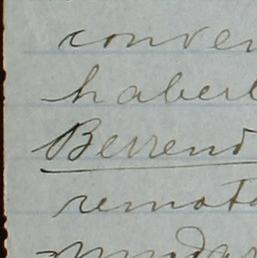 conven
haberl
Berrend
remota